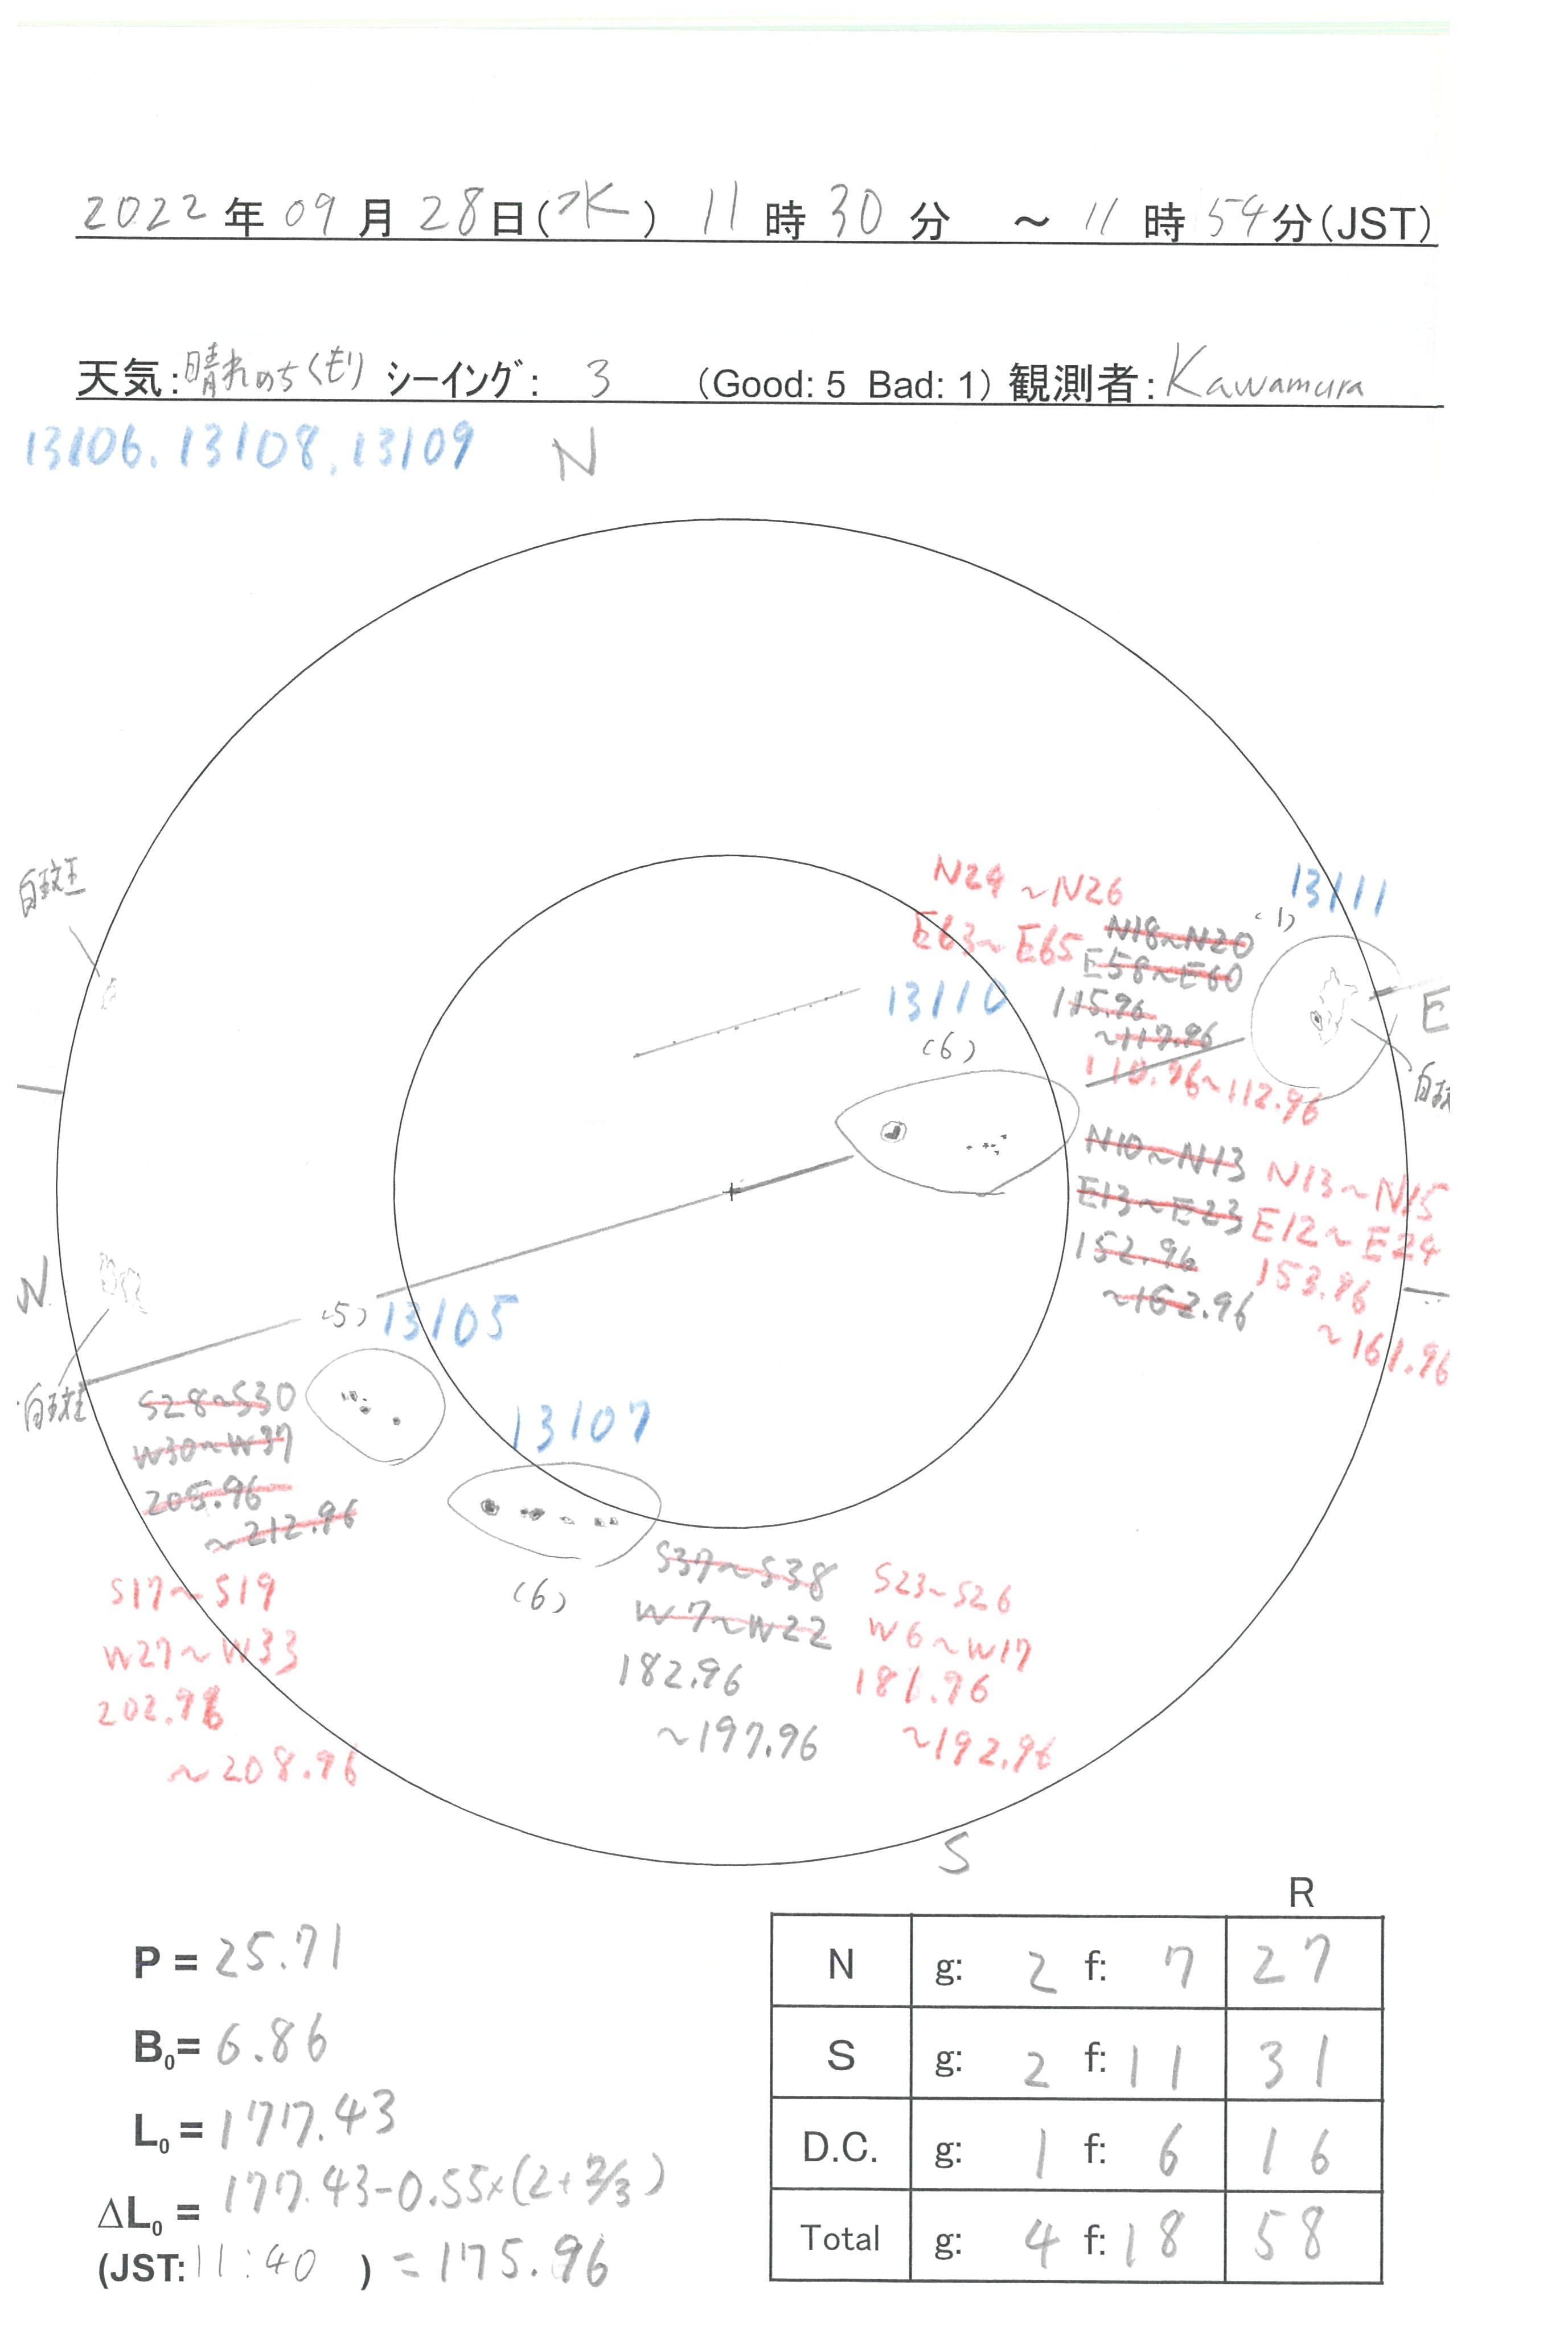 2022年09月28日(水) 11時30分 ～11時54分(JST)
天気:晴れのちくもり シーイング: 3 (Good: 5 Bad: 1) 観測者:Kawamura
13106. 13108. 13109
N
白斑
N24~N26
E63~E65
13111
(1)
N18~N20
E58~E60
115.96
~117.96
110.96~112.96
E
白斑
13110
(6)
N10~N13
E13~E23
152.96
~162.96
N13~N15
E12~E24
153.96
~161.96
W
白斑
(5)
13105
S28~S30
W30~W37
205.96
~212.96
S17~S19
W27~W33
202.96
~208.96
13107
(6)
S37~S38
W7~W22
182.96
~197.96
S23~S26
W6~W17
181.96
~192.96
S
P = 25.71
B0= 6.86
L0 = 177.43
ΔL0 = 177.43-0.55×(2+2/3)
(JST:11:40 ) =175.96
R
N g: 2 f: 7 27
S g: 2 f: 11 31
D.C. g: 1 f: 6 16
Total g: 4 f: 18 58